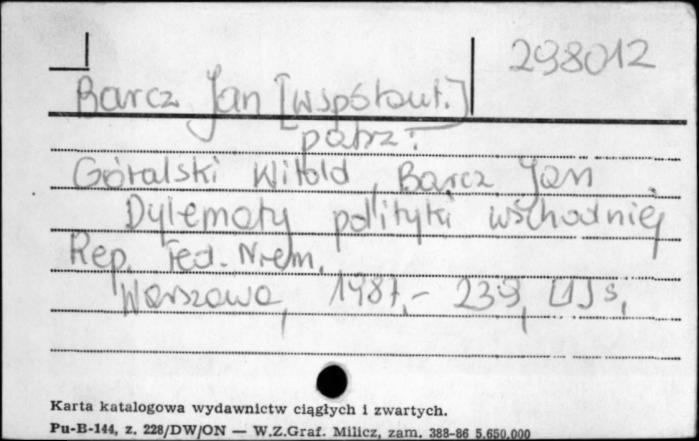 298012
Barcz Jan [współaut.]
patrz:
Góralski Witold, Barcz Jan
Dylematy polityki wschodniej
Rep. Fed. Niem.
Warszawa, 1987,- 239, [1] s,
Karta katalogowa wydawnictw ciągłych i zwartych.
Pu-B-144, z. 228/DW/ON — W.Z.Graf. Milicz, zam. 388-86 5.650.000